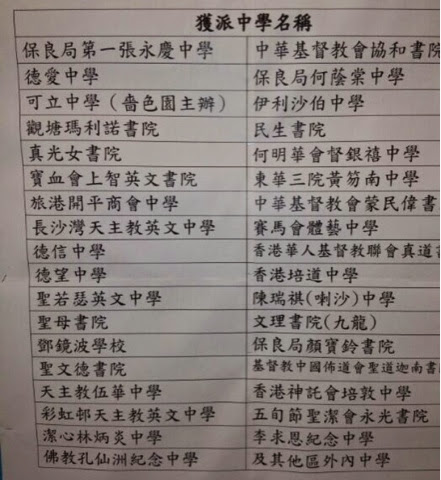 獲派中學名稱
保良局第一張永慶中學 中華基督教會協和書院
德愛中學 保良局何蔭棠中學
可立中學（嗇色園主辦） 伊利沙伯中學
觀塘瑪利諾書院 民生書院
真光女書院 何明華會督銀禧中學
寶血會上智英文書院 東華三院黃笏南中學
旅港開平商會中學 中華基督教會蒙民偉書
長沙灣天主教英文中學 賽馬會體藝中學
德信中學 香港華人基督教聯會真道書
德望中學 香港培道中學
聖若瑟英文中學 陳瑞祺(喇沙)中學
聖母書院 文理書院(九龍)
鄧鏡波學校 保良局顏寶鈴書院
聖文德書院 基督教中國佈道會聖道迦南書
天主教伍華中學 香港神託會培敦中學
彩虹邨天主教英文中學 五旬節聖潔會永光書院
潔心林炳炎中學 李求恩紀念中學
佛教孔仙洲紀念中學 及其他區外內中學